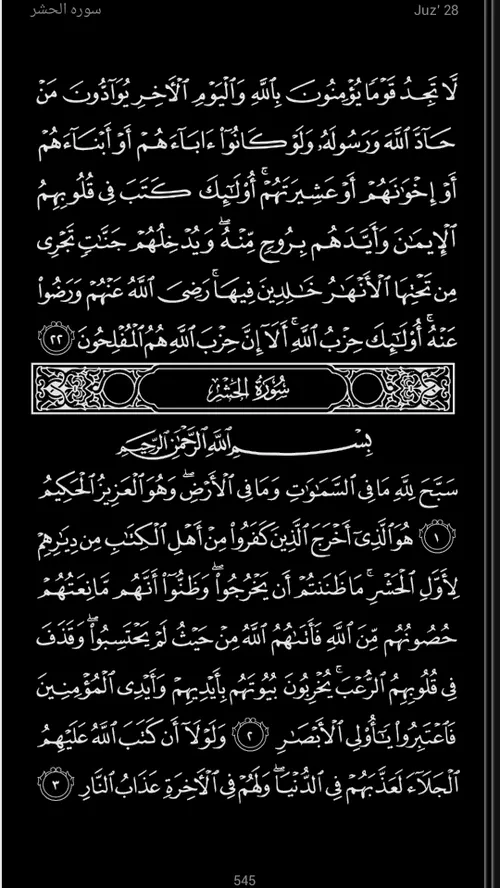 سورة الحشر
Juz' 28
لَّا تَجِدُ قَوْمًا يُؤْمِنُونَ بِٱللَّهِ وَٱلْيَوْمِ ٱلْأٓخِرِ يُوَآدُّونَ مَنْ
حَآدَّ ٱللَّهَ وَرَسُولَهُۥ وَلَوْ كَانُوٓا۟ ءَابَآءَهُمْ أَوْ أَبْنَآءَهُمْ
أَوْ إِخْوَٰنَهُمْ أَوْ عَشِيرَتَهُمْ ۚ أُو۟لَٰٓئِكَ كَتَبَ فِى قُلُوبِهِمُ
ٱلْإِيمَٰنَ وَأَيَّدَهُم بِرُوحٍ مِّنْهُ ۖ وَيُدْخِلُهُمْ جَنَّٰتٍ تَجْرِى
مِن تَحْتِهَا ٱلْأَنْهَٰرُ خَٰلِدِينَ فِيهَا ۚ رَضِىَ ٱللَّهُ عَنْهُمْ وَرَضُوا۟
عَنْهُ ۚ أُو۟لَٰٓئِكَ حِزْبُ ٱللَّهِ ۚ أَلَآ إِنَّ حِزْبَ ٱللَّهِ هُمُ ٱلْمُفْلِحُونَ ٢٢
سُورَةُ الحَشْرِ
بِسْمِ ٱللَّهِ ٱلرَّحْمَٰنِ ٱلرَّحِيمِ
سَبَّحَ لِلَّهِ مَا فِى ٱلسَّمَٰوَٰتِ وَمَا فِى ٱلْأَرْضِ ۖ وَهُوَ ٱلْعَزِيزُ ٱلْحَكِيمُ
١ هُوَ ٱلَّذِىٓ أَخْرَجَ ٱلَّذِينَ كَفَرُوا۟ مِنْ أَهْلِ ٱلْكِتَٰبِ مِن دِيَٰرِهِمْ
لِأَوَّلِ ٱلْحَشْرِ ۚ مَا ظَنَنتُمْ أَن يَخْرُجُوا۟ ۖ وَظَنُّوٓا۟ أَنَّهُم مَّانِعَتُهُمْ
حُصُونُهُم مِّنَ ٱللَّهِ فَأَتَىٰهُمُ ٱللَّهُ مِنْ حَيْثُ لَمْ يَحْتَسِبُوا۟ ۖ وَقَذَفَ
فِى قُلُوبِهِمُ ٱلرُّعْبَ ۚ يُخْرِبُونَ بُيُوتَهُم بِأَيْدِيهِمْ وَأَيْدِى ٱلْمُؤْمِنِينَ
فَٱعْتَبِرُوا۟ يَٰٓأُو۟لِى ٱلْأَبْصَٰرِ ٢ وَلَوْلَآ أَن كَتَبَ ٱللَّهُ عَلَيْهِمُ
ٱلْجَلَآءَ لَعَذَّبَهُمْ فِى ٱلدُّنْيَا ۖ وَلَهُمْ فِى ٱلْأٓخِرَةِ عَذَابُ ٱلنَّارِ ٣
545